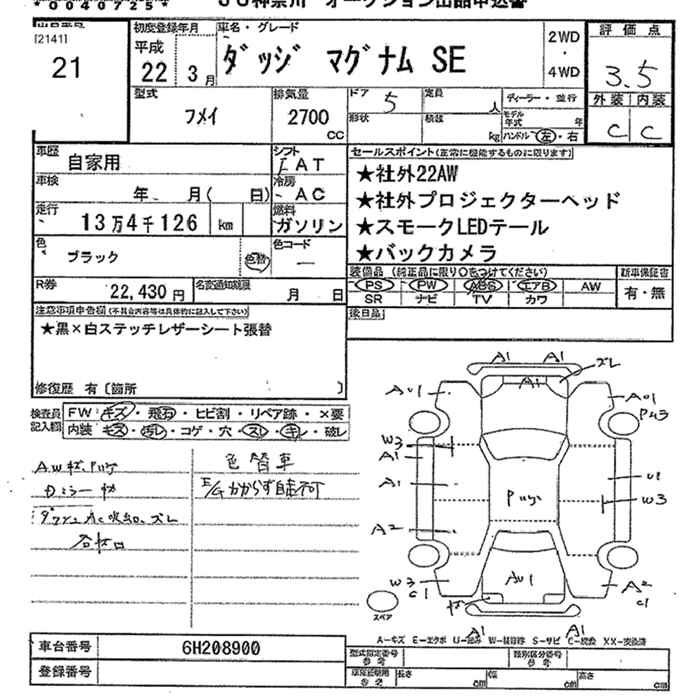 *0040725*
JU神奈川 オークション出品申込書
[2141]
21
初度登録年月
平成
22 3月
車名・グレード
ダッジ マグナム SE
2WD
・
4WD
評価点
3.5
外装 内装
C C
型式
フメイ
排気量
2700
CC
ドア 5
形状
定員 人
積載 kg
ディーラー・並行
モデル年式 年
ハンドル 左・右
車歴
自家用
シフト
FAT
車検
年 月( 日)
冷房
AC
走行
13万4千126 km
燃料
ガソリン
色
ブラック
色替
色コード
—
R券
22,430円
名変通知期限
月 日
セールスポイント(正常に機能するものに限ります)
★社外22AW
★社外プロジェクターヘッド
★スモークLEDテール
★バックカメラ
装備品 (純正品に限り○をつけてください)
PS PW ABS エアB AW
SR ナビ TV カワ
新車保証書
有・無
後日品
注意事項申告欄(不具合内容等は具体的に記入して下さい)
★黒×白ステッチレザーシート張替
修復歴 有[箇所 ]
検査員
記入欄
FW キズ・飛石・ヒビ割・リペア跡・×要
内装 キズ・汚レ・コゲ・穴・スレ・キレ・破レ
色替車
E/Gかからず自走不可
A1 A1 ズレ
A1
AU1 AU1
P43
W3
A1
A1
U1
W3
Pハゲ
A2
W3
C1
AU1
A2
C1
スペア
A1 A1
A-キズ E-エクボ U-凹み W-補修跡 S-サビ C-腐食 XX-交換済
車台番号 6H208900
登録番号
型式指定番号
参考
類別区分番号
参考
長さ cm 幅 cm 高さ cm